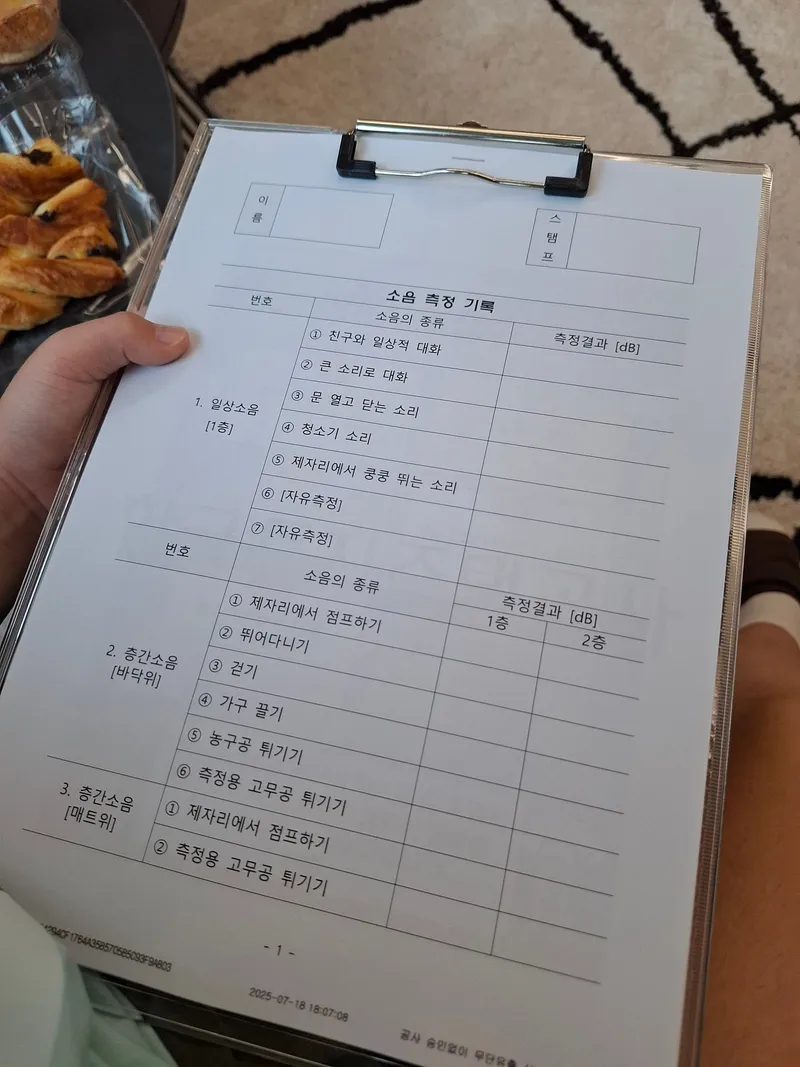 이름
스탬프
소음 측정 기록
번호 소음의 종류 측정결과 [dB]
1. 일상소음
[1층]
① 친구와 일상적 대화
② 큰 소리로 대화
③ 문 열고 닫는 소리
④ 청소기 소리
⑤ 제자리에서 쿵쿵 뛰는 소리
⑥ [자유측정]
⑦ [자유측정]
번호 소음의 종류 측정결과 [dB]
1층 2층
2. 층간소음
[바닥위]
① 제자리에서 점프하기
② 뛰어다니기
③ 걷기
④ 가구 끌기
⑤ 농구공 튀기기
⑥ 측정용 고무공 튀기기
3. 층간소음
[매트위]
① 제자리에서 점프하기
② 측정용 고무공 튀기기
- 1 -
2025-07-18 18:07:08
공사 승인없이 무단유출